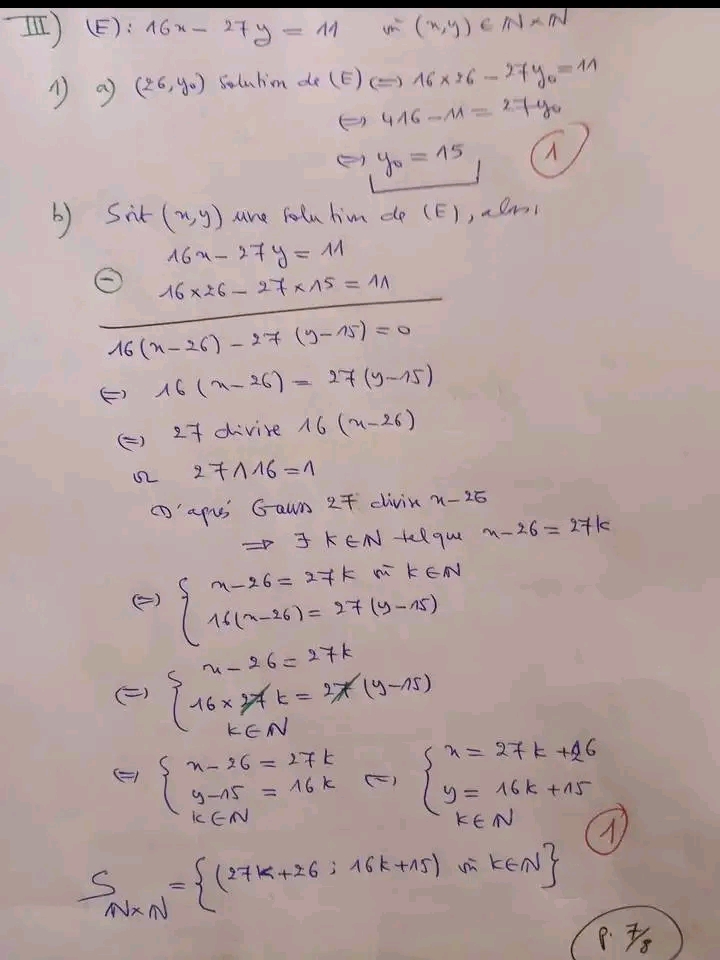 III) (E): 16x - 27y = 11 où (x,y) ∈ ℕ×ℕ
1) a) (26, y₀) solution de (E) ⟺ 16×26 - 27y₀ = 11
⟺ 416 - 11 = 27y₀
⟺ y₀ = 15
1
b) Soit (x,y) une solution de (E), alors
16x - 27y = 11
⊖ 16×26 - 27×15 = 11
16(x-26) - 27(y-15) = 0
⟺ 16(x-26) = 27(y-15)
⟺ 27 divise 16(x-26)
or 27∧16 = 1
D'après Gauss 27 divise x-26
⟹ ∃ k∈ℕ tel que x-26 = 27k
⟺ { x-26 = 27k où k∈ℕ
16(x-26) = 27(y-15)
⟺ { x-26 = 27k
16×27k = 27(y-15)
k∈ℕ
⟺ { x-26 = 27k ⟺ { x = 27k+26
y-15 = 16k y = 16k+15
k∈ℕ k∈ℕ
1
S ℕ×ℕ = {(27k+26 ; 16k+15) où k∈ℕ}
p. 7/8